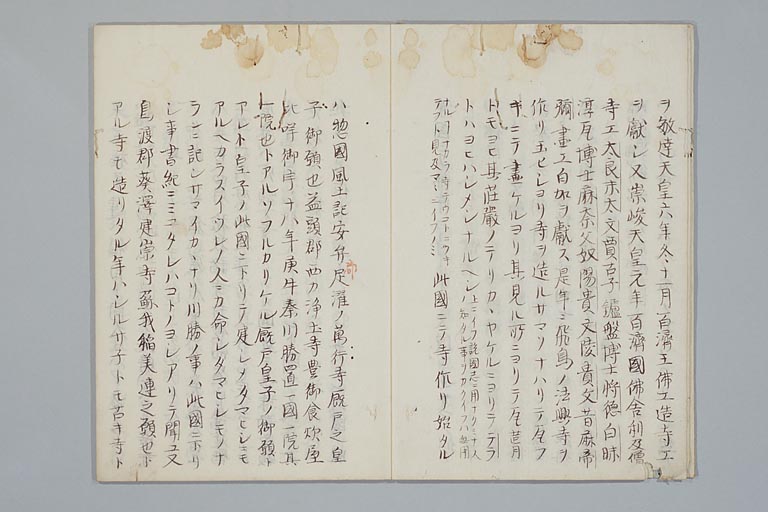 ヲ敏達天皇六年冬十一月百濟王佛工造寺工
ヲ獻シ又崇峻天皇元年百濟國佛舎利及僧
寺工太良未太文賈古子鑪盤博士将德白昧
淳瓦博士麻奈父奴陽貴文陵貴文昔麻帝
彌畫工白加ヲ獻ス是年ニ飛鳥ノ法興寺ヲ
作リ玉ヒシヨリ寺ヲ造ルサマソナハリテ瓦フ
キニテ畫ケルヨリ其見ル所ニヨリテ瓦
トモヨヒ其莊嚴ノテリカヽヤケルニヨリテテラ
トハヨヒハシメシナルヘシ
テフト見及マシニイフノミ 此國ニテ寺作リ始タル
ハ惣國風土記安弁足濯ノ萬行寺厩戸之皇
子御願也益頭郡西刀浄土寺豊御食炊屋
比咩御宇十八年庚午秦川勝置一國一院其
一院也トアルソフルカリケル厩戸皇子ノ御願ト
アレト皇子ノ此國ニ下リテ建シメタマヒシニモ
アルヘカラスイツレノ人ニカ命シタマヒシモノナ
ランニ記シサマイカヽナリ川勝ノ事ハ此國ニ下リ
シ事書紀ニミユタレハコトノヨシアリテ聞ユ又
鳥渡郡葵澤建崇寺蘇我稲美連之願也ト
アル寺モ造リタル年ハシルサネトモ古キ寺ト